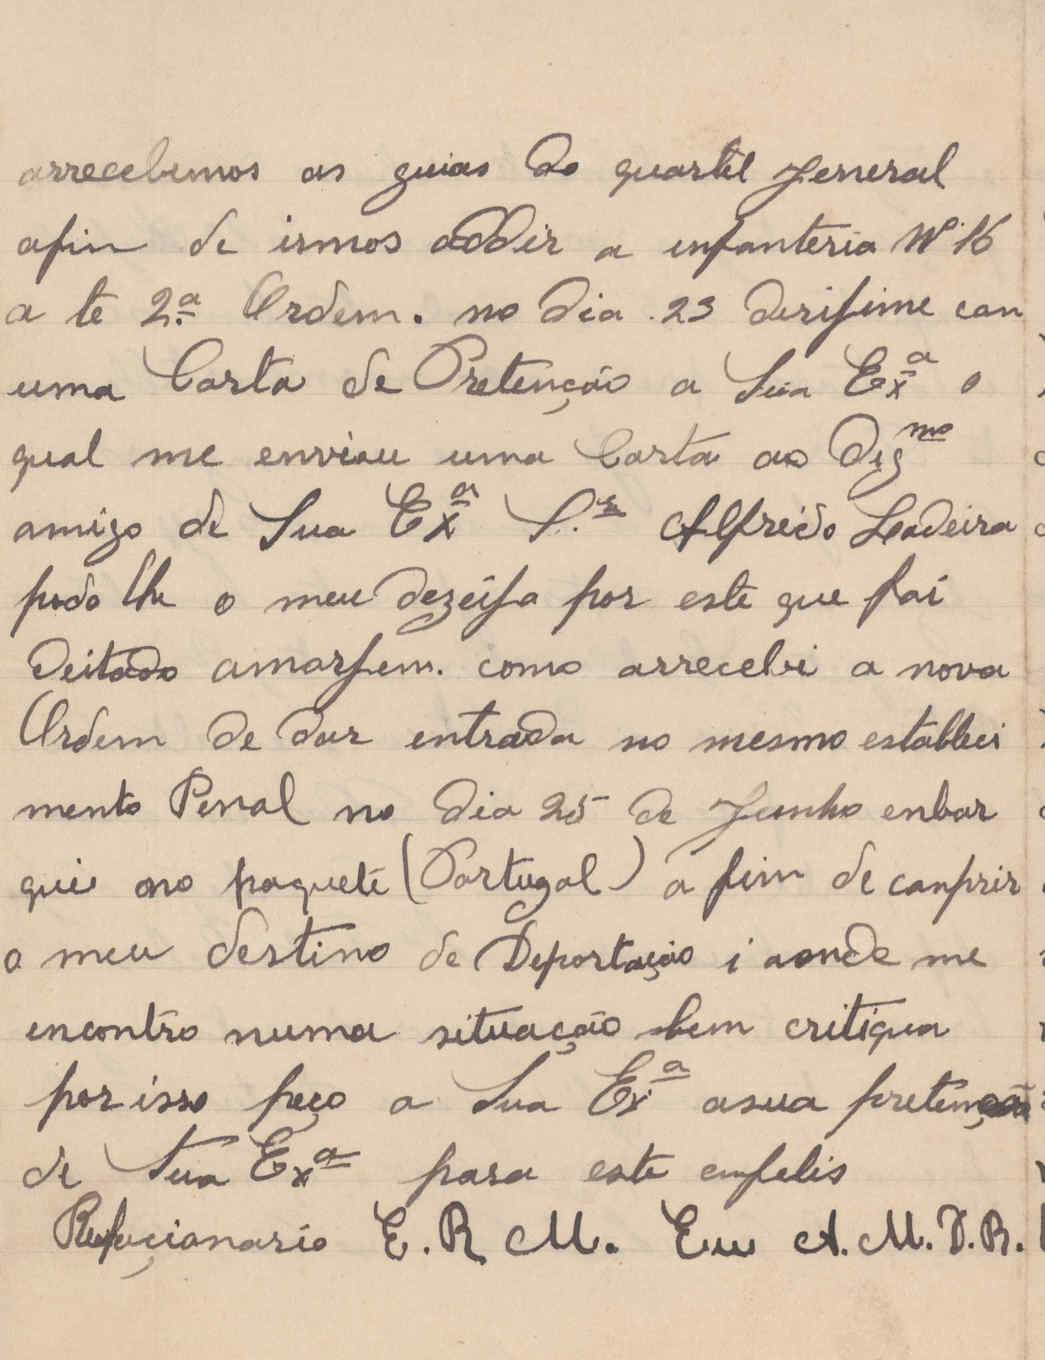 arrecebemos as guias do quartel Jeneral
afin de irmos addir a enfanteria Nº 16
a te 2.ª Ordem. no dia 23 derifime con
uma Carta de Pretenção a Sua Exª o
qual me enviau uma Carta ao Digmo
amigo de Sua Exª S.r Alfredo Ladeira
podo lhe o meu dezeifa por este que foi
deitado amarfem. como arrecebi a nova
Ordem de dar entrada no mesmo establici
mento Penal no dia 25 de Junho enbar
quei no paquete (Portugal) a fim de canprir
o meu destino de Deportação i aonde me
encontro numa situação bem critiqua
por isso peço a Sua Exª asua pretenção
de Sua Exª para este enfelis
Rufucionario E. R M. Eu A. M. D. R.